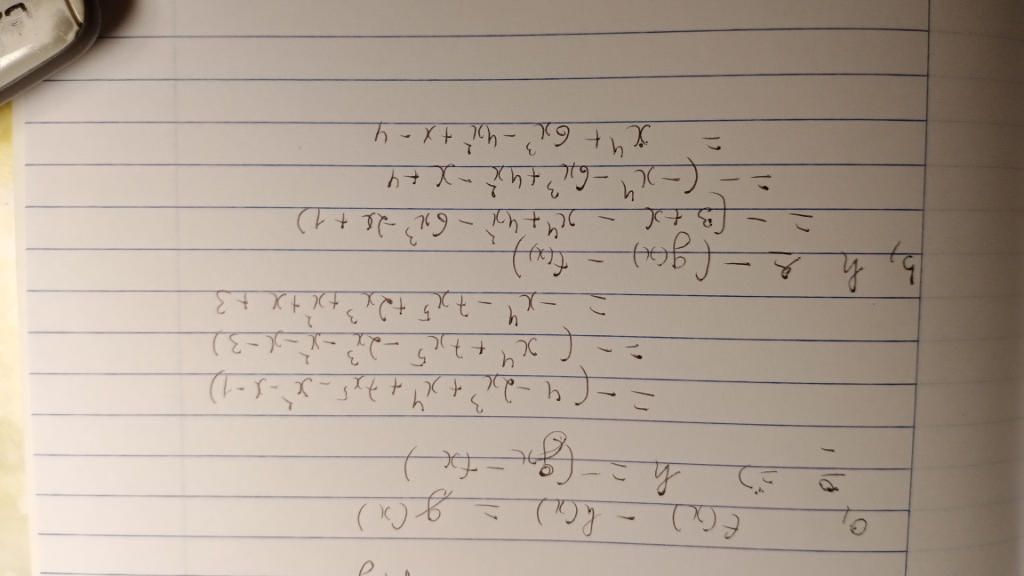 a, f(x) - h(x) = g(x)
=> h = -(gx - fx)
= -(4 - 2x³ + x⁴ + 7x⁵ - x² - x - 1)
= -(x⁴ + 7x⁵ - 2x³ - x² - x - 3)
= -x⁴ - 7x⁵ + 2x³ + x² + x + 3
b, h = -(g(x) - f(x))
= -(3 + x - x⁴ + 4x² - 6x³ - 2x + 1)
= -(-x⁴ - 6x³ + 4x² - x + 4
= x⁴ + 6x³ - 4x² + x - 4